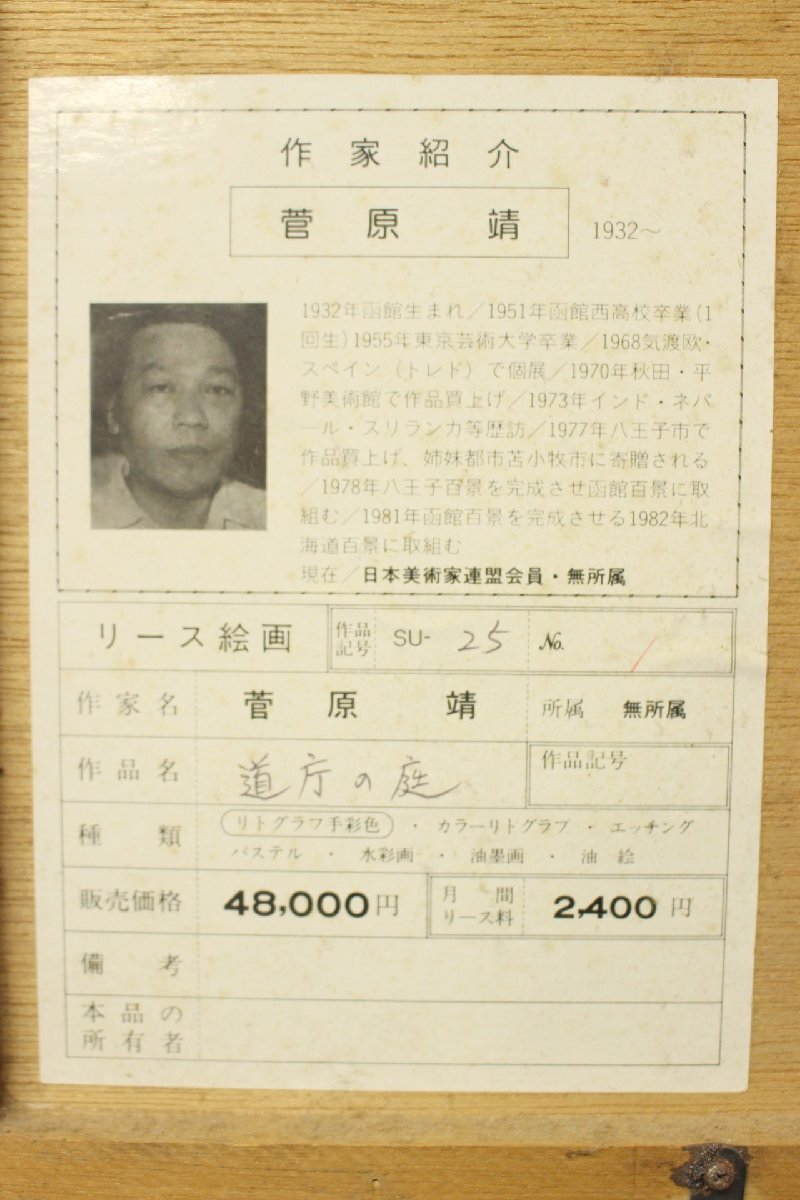 作家紹介
菅原 靖 1932〜
1932年函館生まれ/1951年函館西高校卒業(1
回生)1955年東京芸術大学卒業/1968気渡欧・
スペイン(トレド)で個展/1970年秋田・平
野美術館で作品買上げ/1973年インド・ネパ
ール・スリランカ等歴訪/1977年八王子市で
作品買上げ、姉妹都市苫小牧市に寄贈される
/1978年八王子百景を完成させ函館百景に取
組む/1981年函館百景を完成させる1982年北
海道百景に取組む
現在/日本美術家連盟会員・無所属
リース絵画 作品記号 SU- 25 No.
作家名 菅原 靖 所属 無所属
作品名 道庁の庭 作品記号
種類 リトグラフ手彩色・カラーリトグラフ・エッチング
パステル・水彩画・油墨画・油絵
販売価格 48,000円 月間リース料 2,400円
備考
本品の
所有者